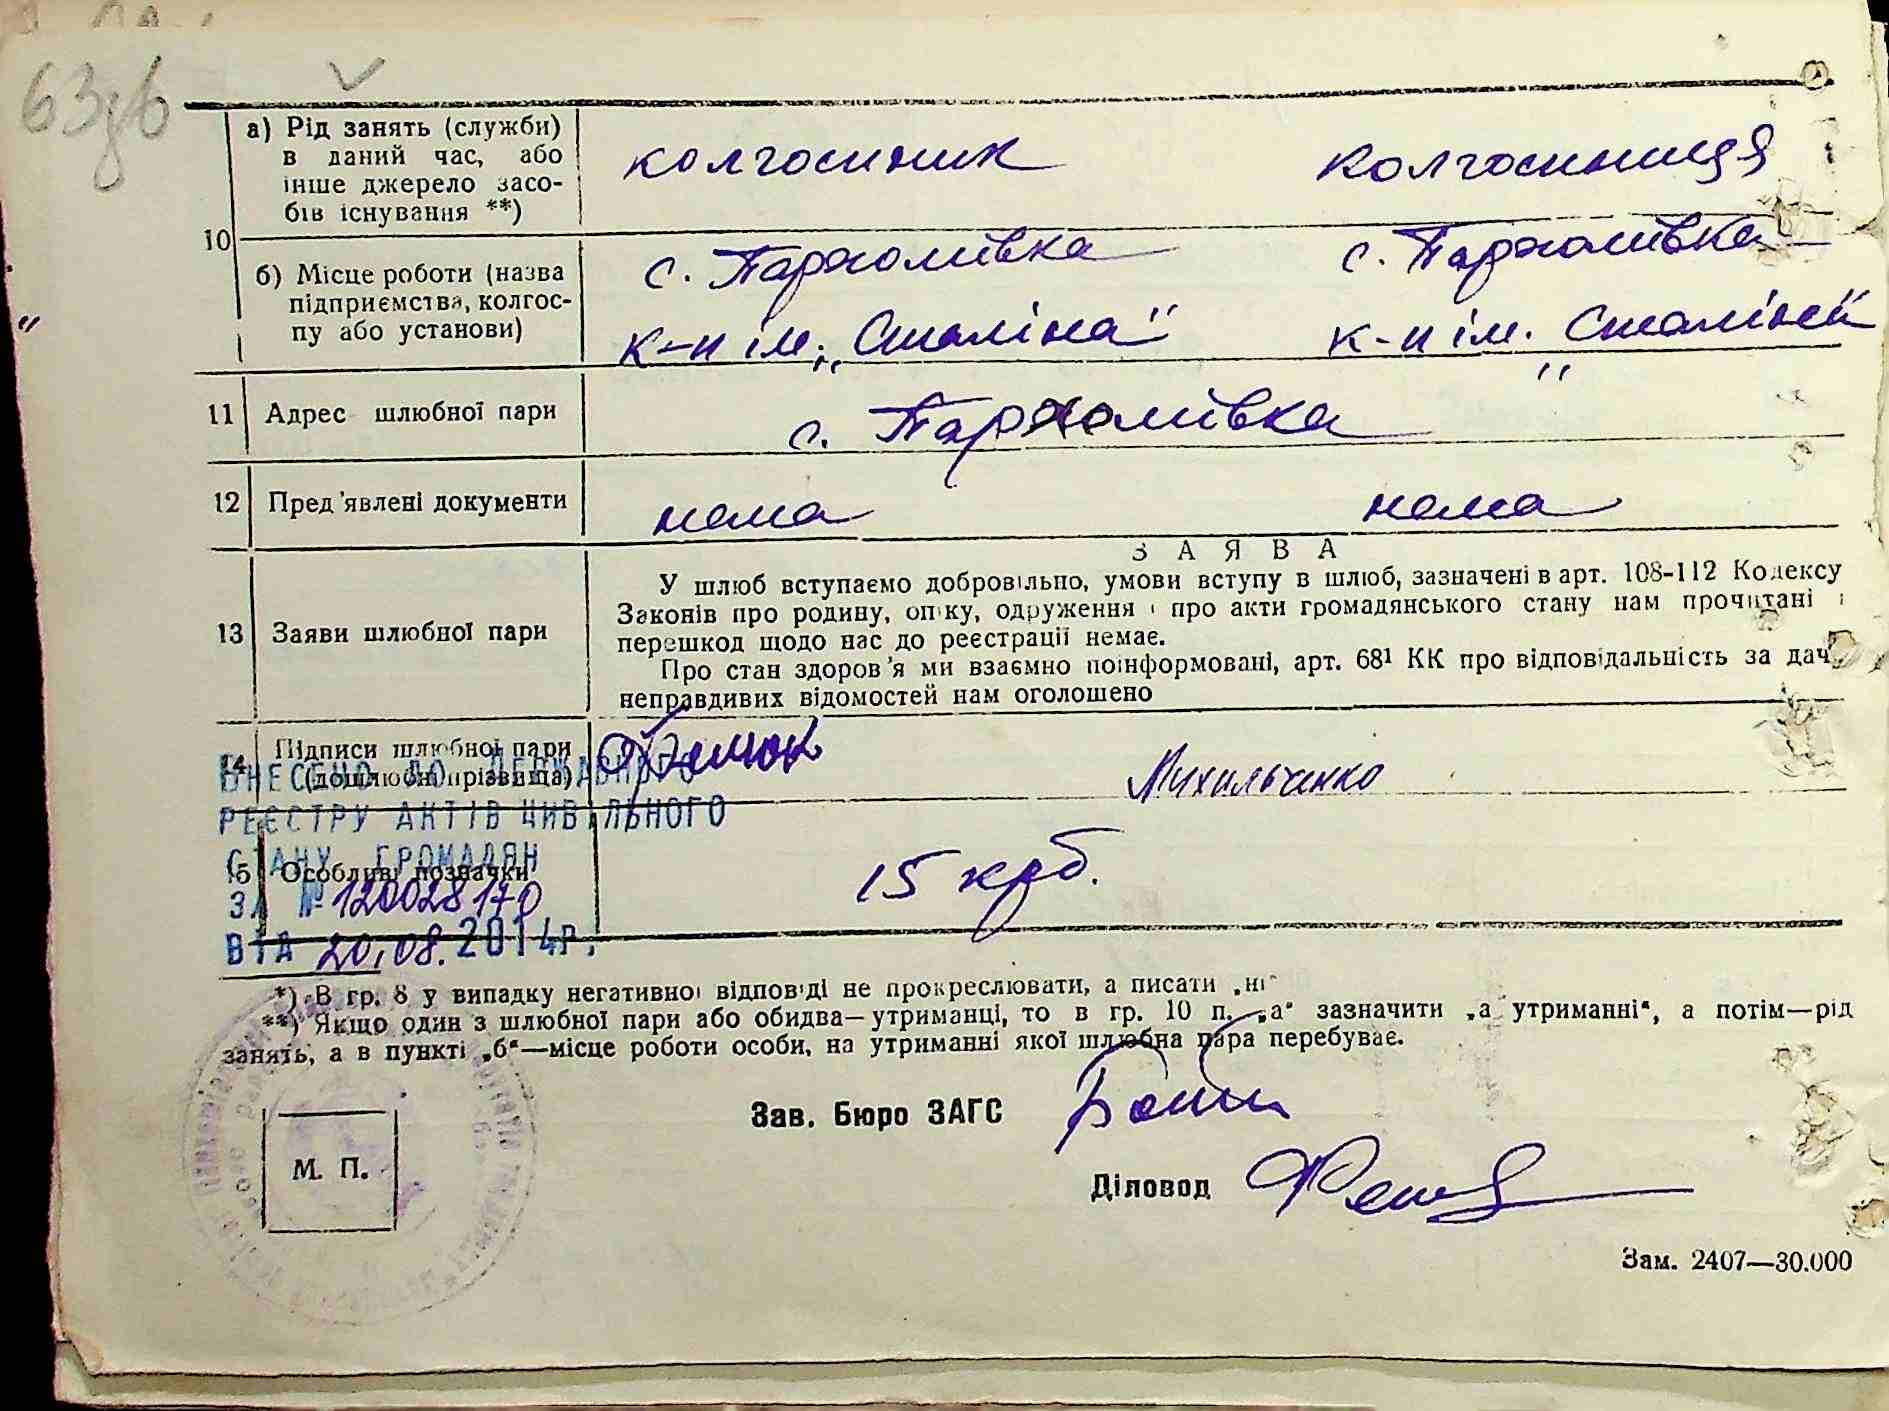 63зв
а) Рід занять (служби) в даний час, або інше джерело засобів існування **)
колгоспник колгоспниця
10
б) Місце роботи (назва підприємства, колгоспу або установи)
с. Пархомівка с. Пархомівка
к-п ім. „Сталіна" к-п ім. „Сталіна"
11 Адрес шлюбної пари с. Пархомівка
12 Пред'явлені документи нема нема
ЗАЯВА
13 Заяви шлюбної пари
У шлюб вступаємо добровільно, умови вступу в шлюб, зазначені в арт. 108-112 Кодексу
Законів про родину, опіку, одруження і про акти громадянського стану нам прочитані і
перешкод щодо нас до реєстрації немає.
Про стан здоров'я ми взаємно поінформовані, арт. 68¹ КК про відповідальність за дачу
неправдивих відомостей нам оголошено
14 Підписи шлюбної пари
(дошлюбні прізвища)
Михильченко
ВНЕСЕНО ДО ДЕРЖАВНОГО
РЕЄСТРУ АКТІВ ЦИВІЛЬНОГО
СТАНУ ГРОМАДЯН
15 Особливі позначки 15 крб.
ЗА № 120028170
ВІД 20.08.2014р.
*) В гр. 8 у випадку негативної відповіді не прокреслювати, а писати „ні"
**) Якщо один з шлюбної пари або обидва—утриманці, то в гр. 10 п. „а" зазначити „а утриманні", а потім—рід
занять, а в пункті „б"—місце роботи особи, на утриманні якої шлюбна пара перебуває.
Зав. Бюро ЗАГС
М. П.
Діловод
Зам. 2407—30.000